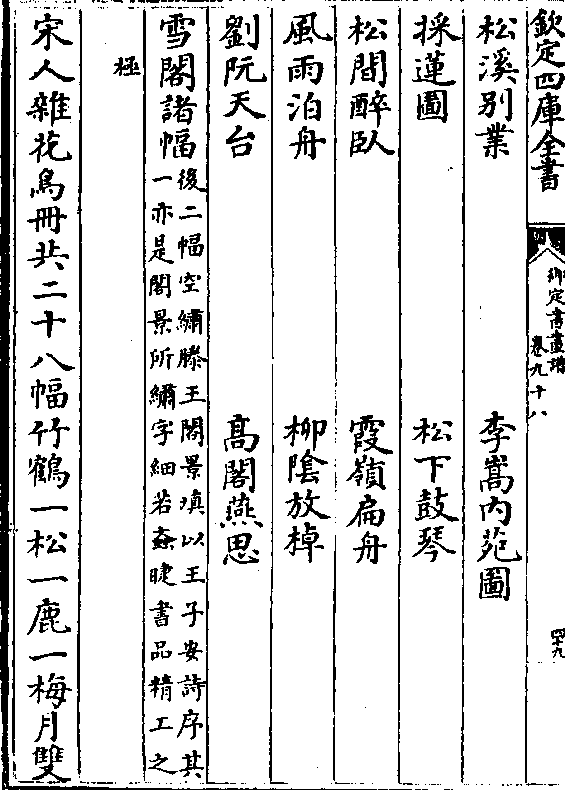 欽定四庫全書
御定書畫譜
卷九十八
四十九
松溪别業　李嵩内苑圖
採蓮圖　松下鼓琴
松間醉臥　霞嶺扁舟
風雨泊舟　柳陰放棹
劉阮天台　高閣燕思
雪閣諸幅後二幅空繡滕王閣景填以王子安詩序其
一亦是閣景所繡字細若蚉睫書品精工之
極
宋人雜花鳥冊共二十八幅竹鶴一松一鹿一梅月雙